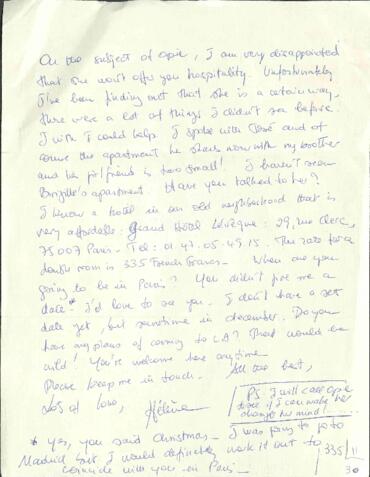 On the subject of Opie, I am very disappointed
that she won't offer you hospitality. Unfortunately
I've been finding out that she is a certain way,
there were a lot of things I didn't see before.
I wish I could help. I spoke with José and of
course the apartment he shares now with my brother
and his girlfriend is too small! I haven't seen
Brigitte's apartment. Have you talked to her?
I know a hotel in an old neighborhood that is
very affordable: Grand Hôtel Lévêque: 29, rue Cler,
75007 Paris. Tel: 01.47.05.49.15. The rate for a
double room is 335 French Francs. When are you
going to be in Paris? You didn't give me a
date*. I'd love to see you. I don't have a set
date yet, but sometime in december. Do you
have any plans of coming to LA? That would be
wild! You're welcome here anytime.
Please keep me in touch. All the best,
lots of love, Hélène
PS. I will call Opie
to see if I can make her
change her mind!
* Yes, you said Christmas. I was going to go to
Madrid but I would definitely work it out to
coincide with you in Paris.
335
11
30